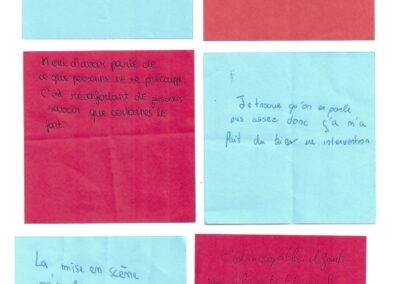 Merci d'avoir parlé de
ce que personne ne se préoccupe.
C'est réconfortant de
savoir que certaines le
fait.
Je trouve qu'on en parle
pas assez donc ç'a m'a
fait du bien une intervention
La mise en scène
C'est incroyable il faut